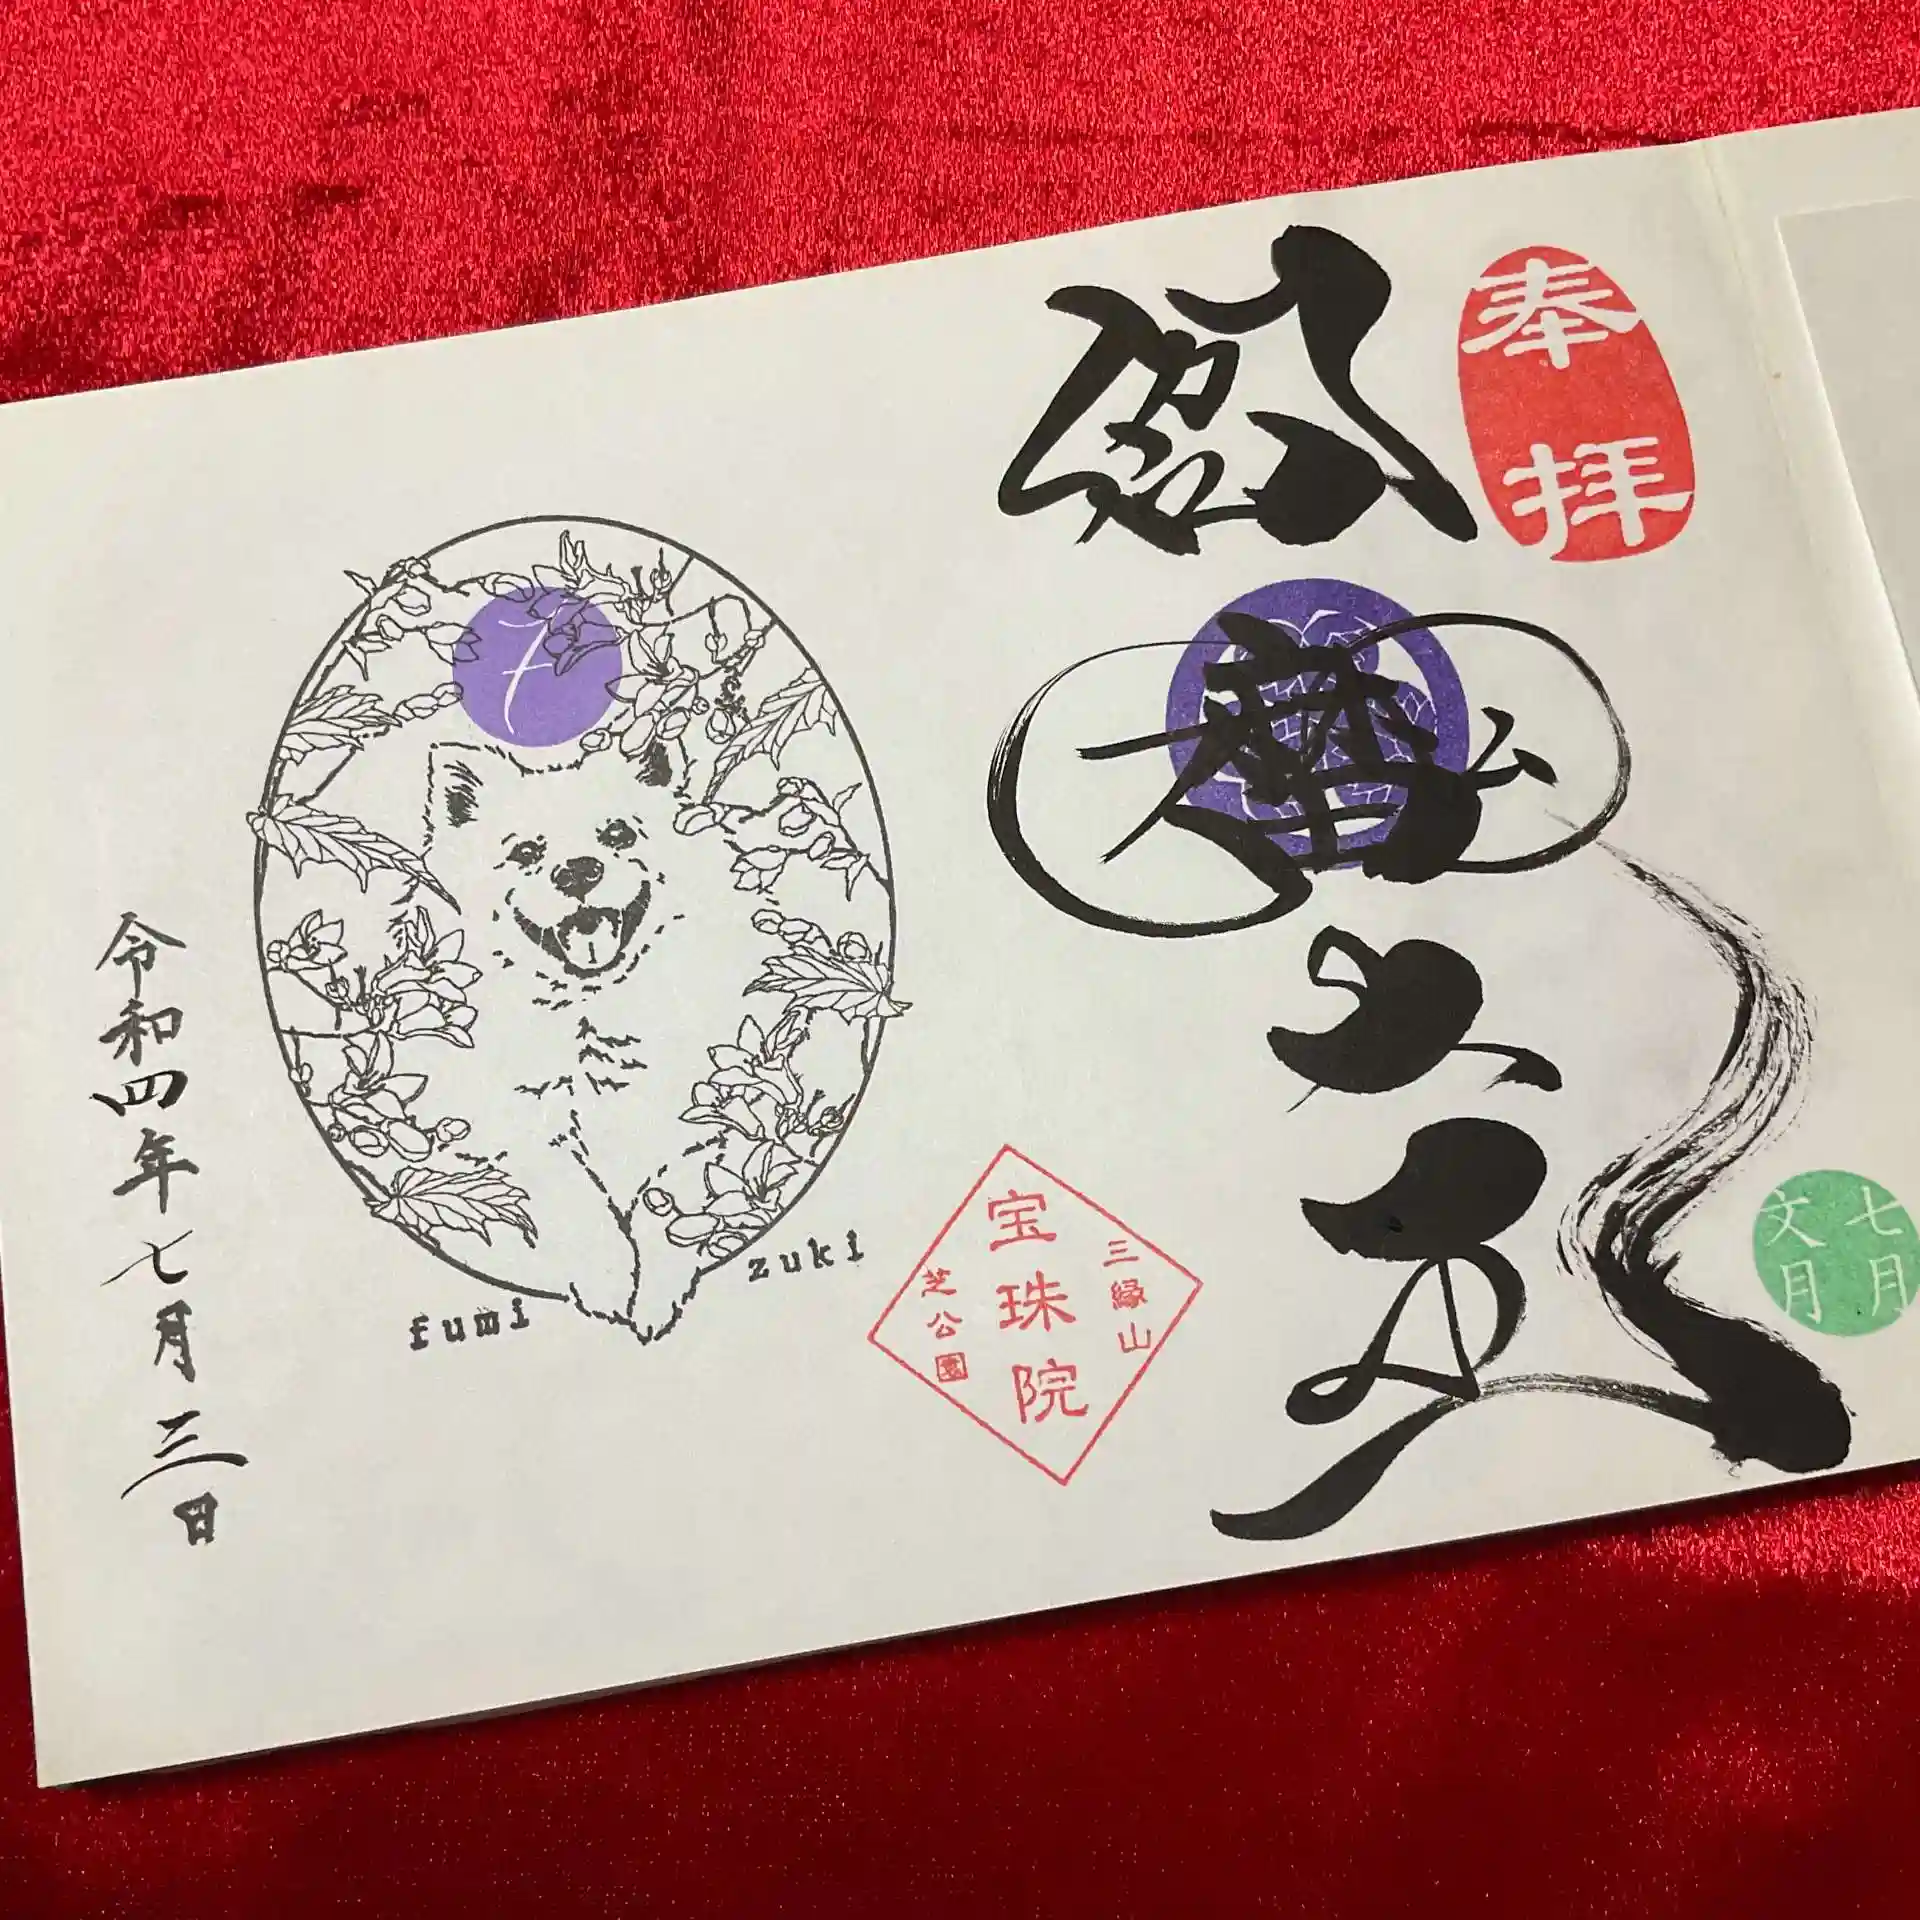 奉拝
閻魔大王
七月
文月
三縁山
宝珠院
芝公園
7
fumi zuki
令和四年七月三日